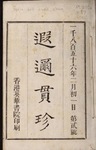 一千八百五十六年二月朔一日 第貳號
遐邇貫珍
香港英華書院印刷